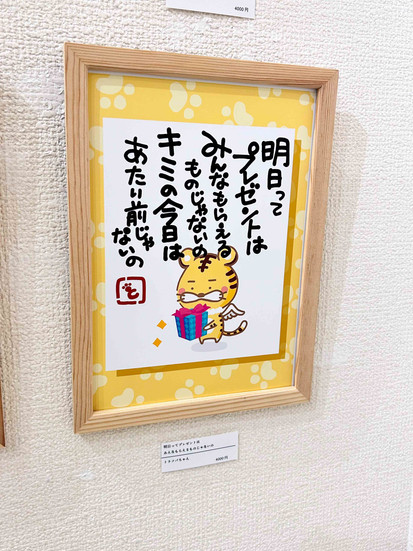 4000円
明日って
プレゼントは
みんなもらえる
ものじゃないの
キミの今日は
あたり前じゃ
ないの
明日ってプレゼントは
みんなもらえるものじゃないの